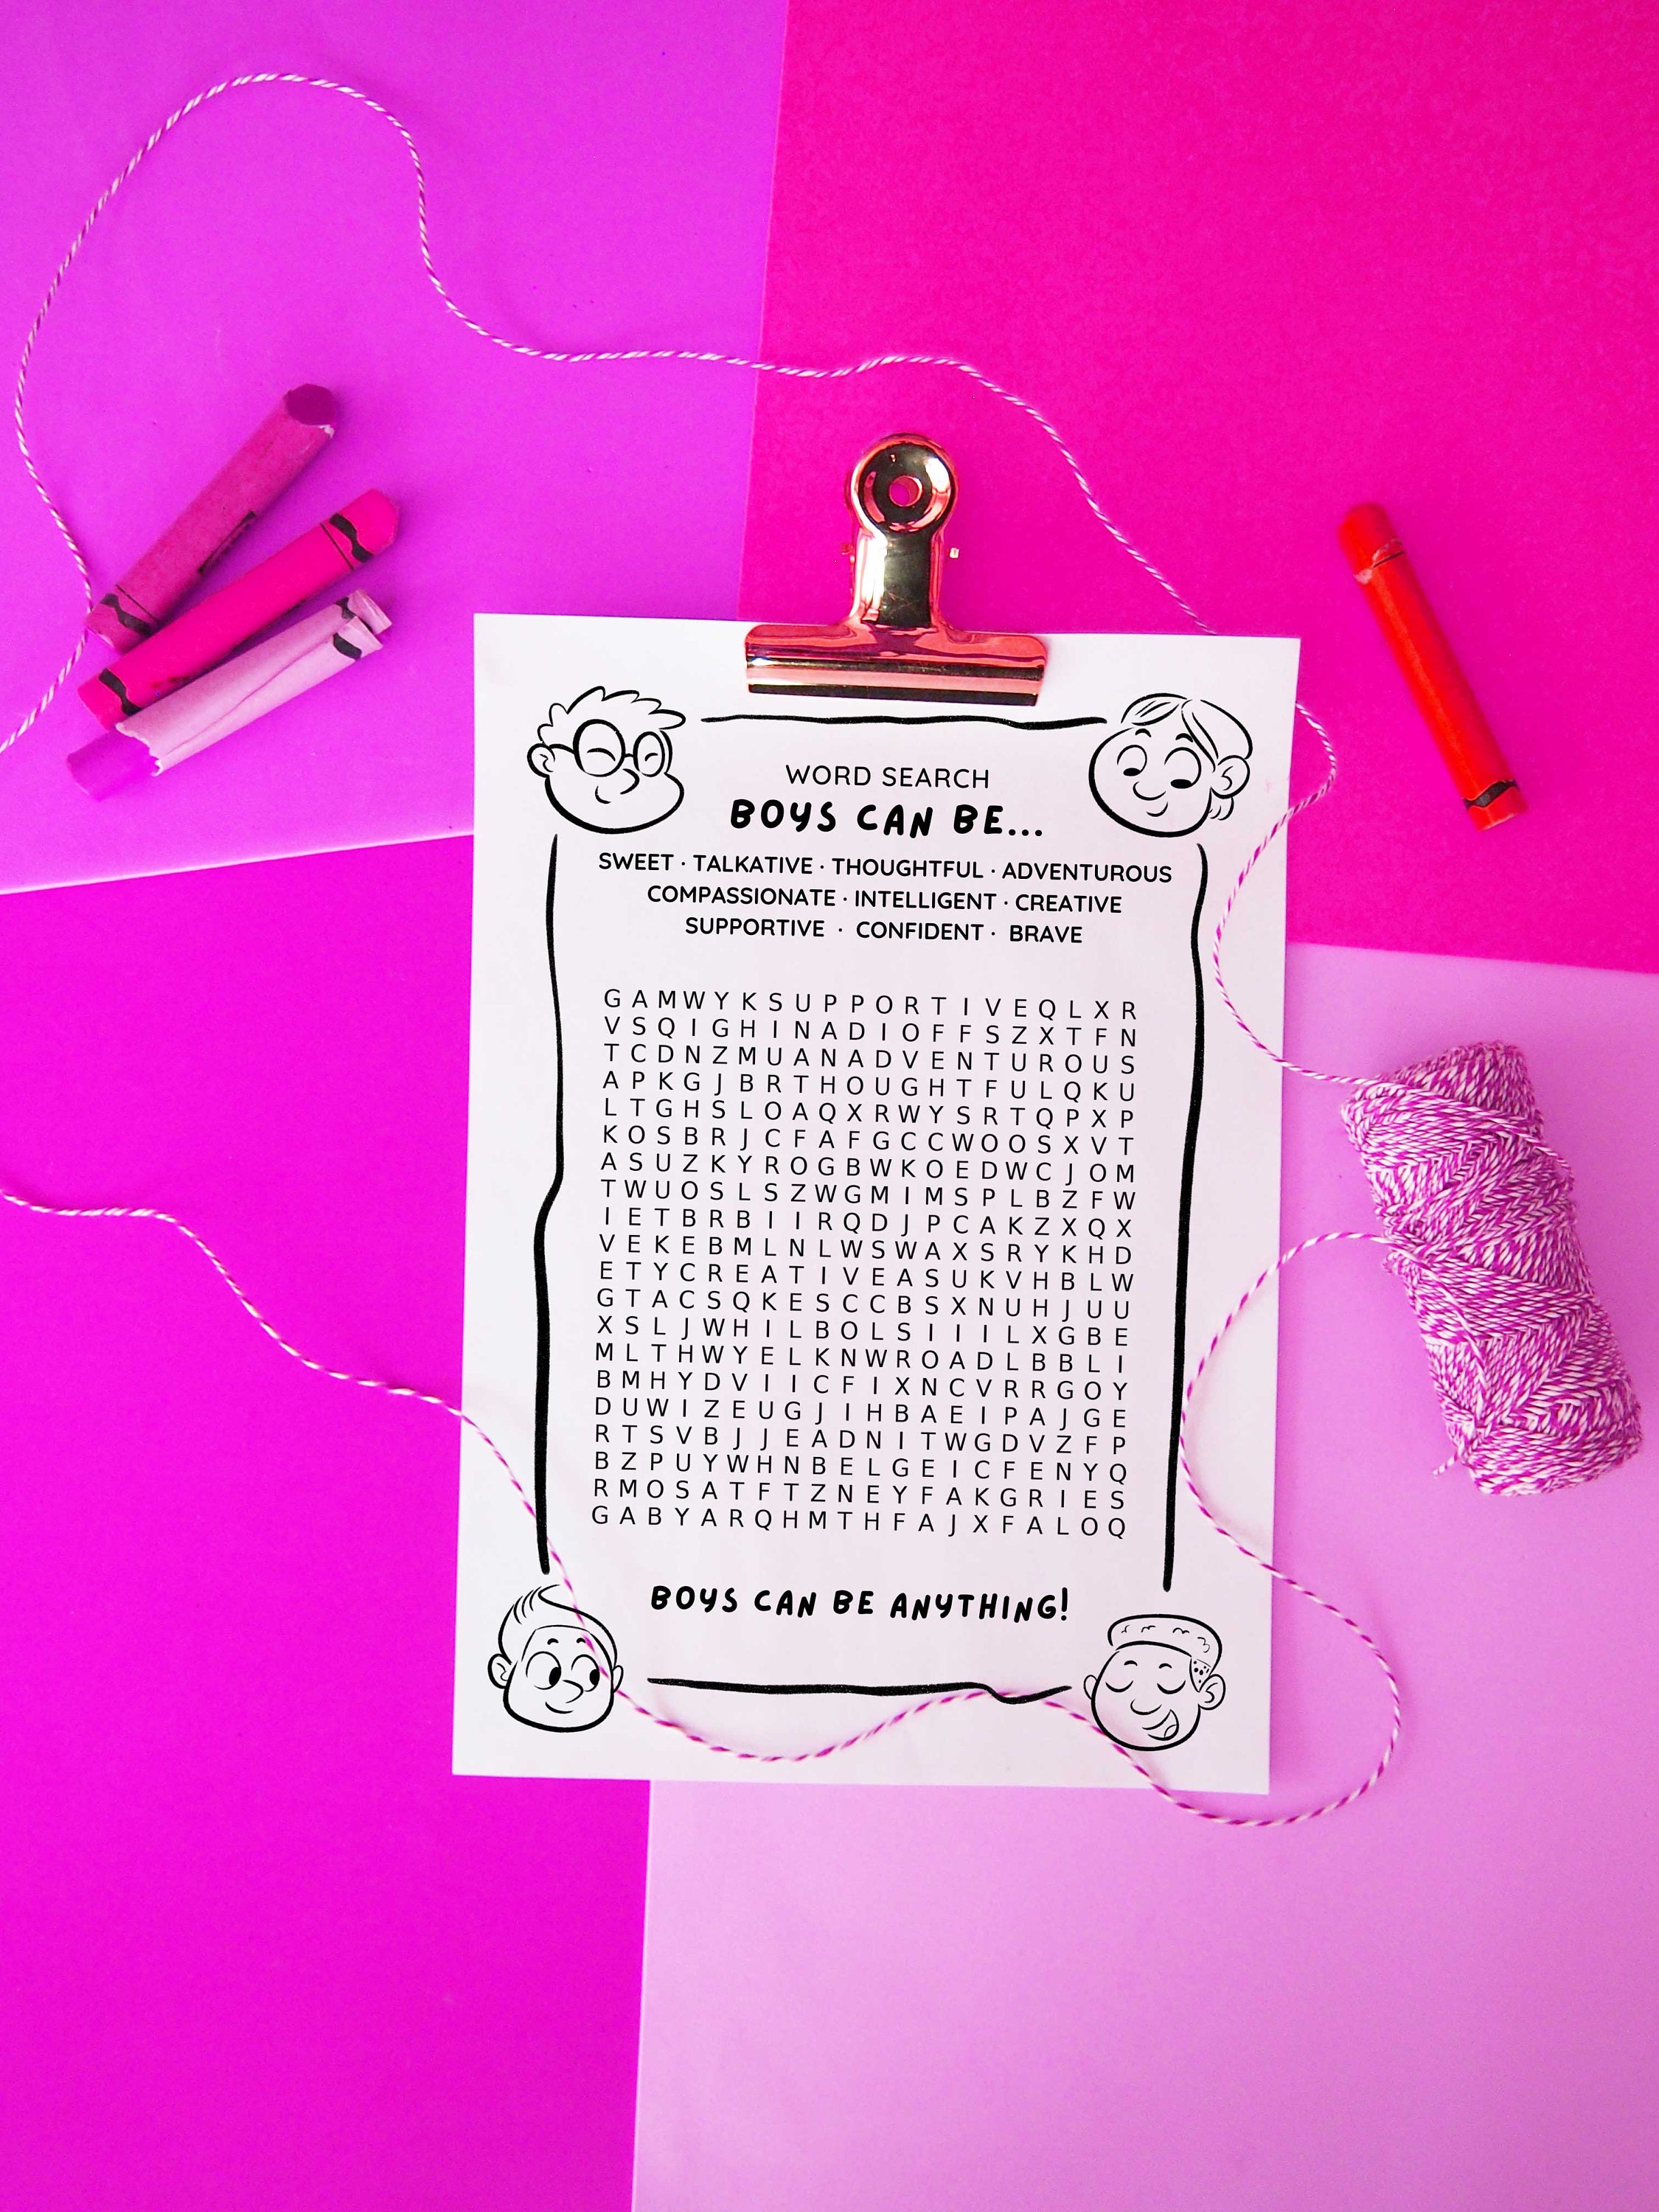 WORD SEARCH
BOYS CAN BE...
SWEET · TALKATIVE · THOUGHTFUL · ADVENTUROUS
COMPASSIONATE · INTELLIGENT · CREATIVE
SUPPORTIVE · CONFIDENT · BRAVE
G A M W Y K S U P P O R T I V E Q L X R
V S Q I G H I N A D I O F F S Z X T F N
T C D N Z M U A N A D V E N T U R O U S
A P K G J B R T H O U G H T F U L Q K U
L T G H S L O A Q X R W Y S R T Q P X P
K O S B R J C F A F G C C W O O S X V T
A S U Z K Y R O G B W K O E D W C J O M
T W U O S L S Z W G M I M S P L B Z F W
I E T B R B I I R Q D J P C A K Z X Q X
V E K E B M L N L W S W A X S R Y K H D
E T Y C R E A T I V E A S U K V H B L W
G T A C S Q K E S C C B S X N U H J U U
X S L J W H I L B O L S I I I L X G B E
M L T H W Y E L K N W R O A D L B B L I
B M H Y D V I I C F I X N C V R R G O Y
D U W I Z E U G J I H B A E I P A J G E
R T S V B J J E A D N I T W G D V Z F P
B Z P U Y W H N B E L G E I C F E N Y Q
R M O S A T F T Z N E Y F A K G R I E S
G A B Y A R Q H M T H F A J X F A L O Q
BOYS CAN BE ANYTHING!